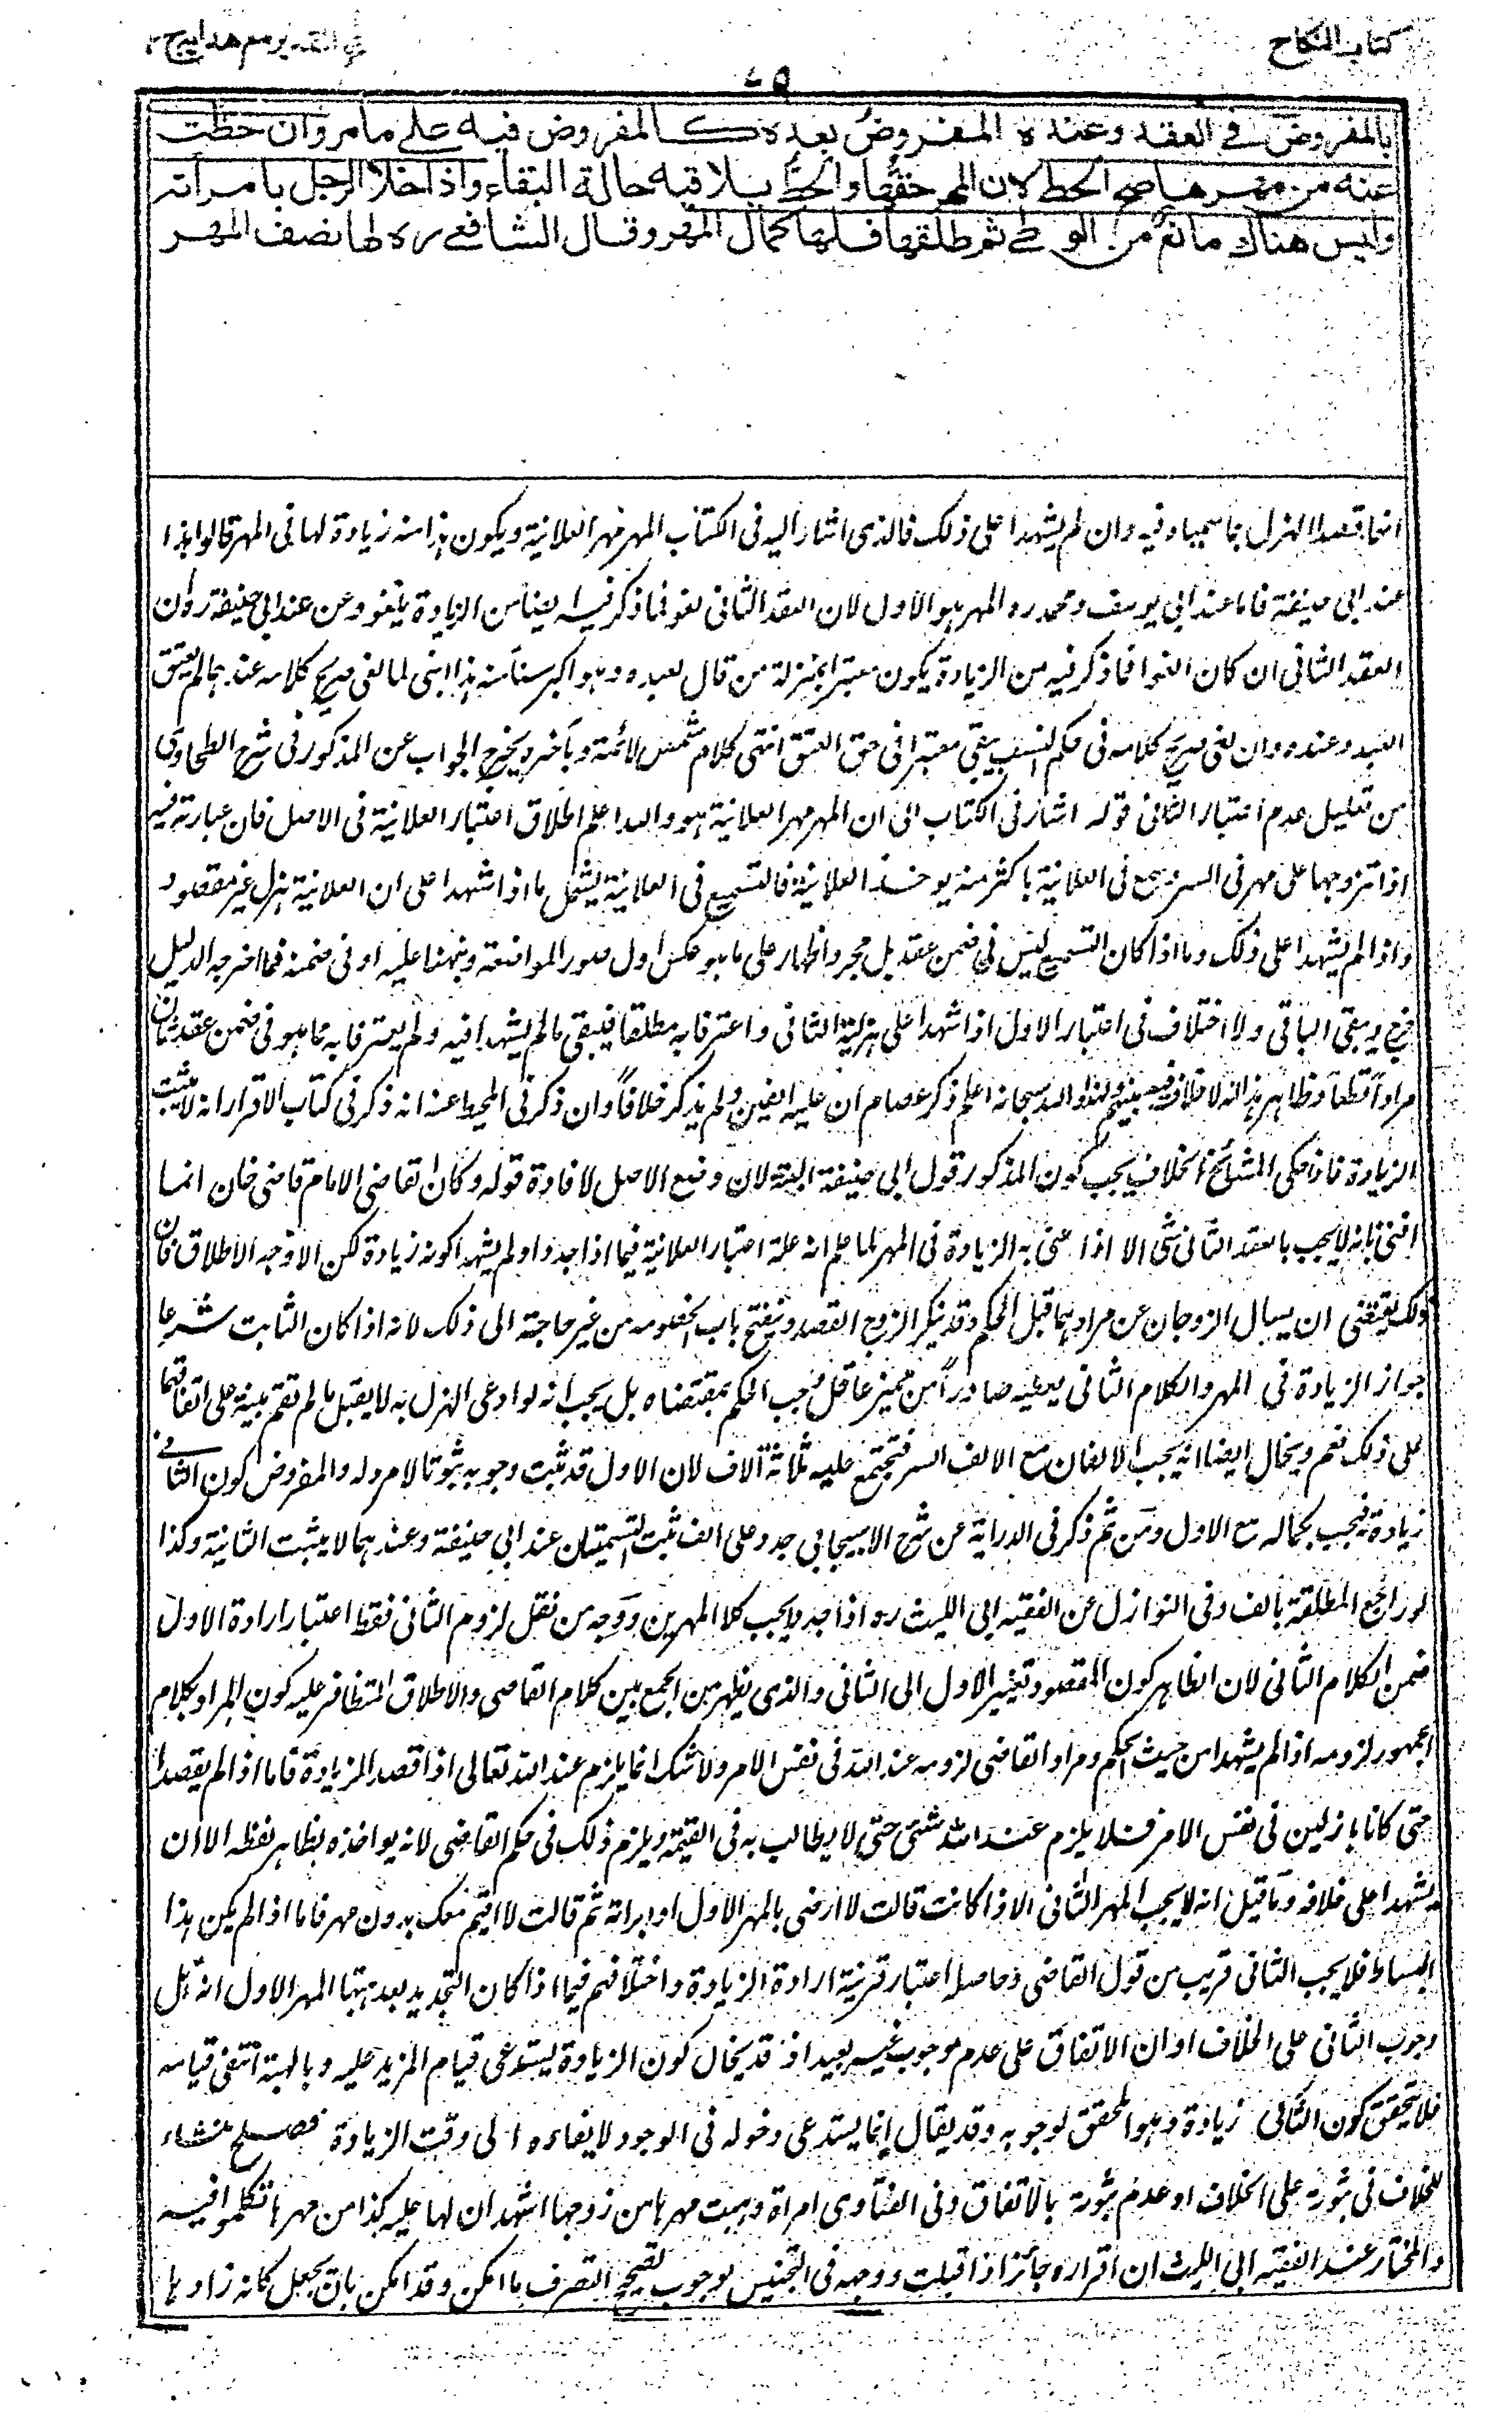 كتاب النكاح
فتح القدير مع هداية ج ٢
٧٥
بالمفروض في العقد وعنده المفروض بعده كالمفروض فيه على ما مر وان حطت
عنه من مهرها صح الحط لان المهر حقها والحط يلاقيه حالة البقاء واذا خلا الرجل بامرأته
وليس هناك مانع من الوطئ ثم طلقها فلها كمال المهر وقال الشافعي ره لها نصف المهر
انما قصدا الهزل بما سمياه فيه وان لم يشهدا على ذلك فالذي اشار اليه في الكتاب المهر مهر العلانية ويكون هذا منه زيادة لها في المهر قالوا هذا
عند ابي حنيفة فاما عند ابي يوسف ومحمد ره المهر هو الاول لان العقد الثاني لغو فما ذكر فيه ايضا من الزيادة يلغو وعن عند ابي حنيفة ره ان
العقد الثاني ان كان لغوا فما ذكر فيه من الزيادة يكون معتبرا بمنزلة من قال لعبده وهو اكبر سنا منه هذا ابني لما لغى صريح كلامه عندهما لم يعتق
العبد وعنده وان لغى صريح كلامه في حكم النسب يبقى معتبرا في حق العتق انتهى كلام شمس الائمة وبآخره يخرج الجواب عن المذكور في شرح الطحاوي
من تعليل عدم اعتبار الثاني قوله اشار في الكتاب الى ان المهر مهر العلانية هو والله اعلم اطلاق اعتبار العلانية في الاصل فان عبارته فيه
اذا تزوجها على مهر في السر وسمع في العلانية باكثر منه يوخذ العلانية فالتسميع في العلانية يشمل ما اذا اشهدا على ان العلانية هزل غير مقصود
واذا لم يشهدا على ذلك وما اذا كان التسميع ليس في ضمن عقد بل مجرد اظهار على ما هو عكس اول صور المواضعة ونبهنا عليه او في ضمنه فما اخرجه الدليل
خرج ويبقى الباقي ولا اختلاف في اعتبار الاول اذا اشهدا على هزلية الثاني واعترفا به مطلقا فيبقى ما لم يشهدا فيه ولم يعترفا به مما هو في ضمن عقد ثان
مرادا قطعا وظاهر هذا انه لا خلاف فيه بينهم ولهذا والله سبحانه اعلم ذكر عصام ان عليه الفين ولم يذكر خلافا وان ذكر في المحيط عنه انه ذكر في كتاب الاقرار انه لا تثبت
الزيادة فاذا حكى المشائخ الخلاف يجب كون المذكور قول ابي حنيفة البتة لان وضع الاصل لافادة قوله وكان القاضي الامام قاضي خان انما
افتى بانه لا يجب بالعقد الثاني شئ الا اذا عنى به الزيادة في المهر لما علم انه علة اعتبار العلانية فيما اذا جددا ولم يشهدا كونه زيادة لكن الاوجه الاطلاق فان
ذلك يقتضي ان يسال الزوجان عن مرادهما قبل الحكم وقد ينكر الزوج القصد وينفتح باب الخصومه من غير حاجة الى ذلك لانه اذا كان الثابت شرعا
جواز الزيادة في المهر والكلام الثاني يعطيه صادرا من مميز عاقل وجب الحكم بمقتضاه بل يجب انه لو ادعى الهزل به لا يقبل ما لم تقم بينة على اتفاقهما
على ذلك نعم ويخال ايضا انه يجب الالفان مع الالف السر فتجتمع عليه ثلاثة آلاف لان الاول قد ثبت وجوبه ثبوتا لا مرد له والمفروض كون الثاني
زيادة فيجب بكماله مع الاول ومن ثم ذكر في الدراية عن شرح الاسبيجابي جدد على الف ثبت التسميتان عند ابي حنيفة وعندهما لا يثبت الثانية وكذا
لو راجع المطلقة بالف وفي النوازل عن الفقيه ابي الليث ره اذا جدد يجب كلا المهرين ووجه من نقل لزوم الثاني فقط اعتبار ارادة الاول
ضمن الكلام الثاني لان الظاهر كون المقصود تغيير الاول الى الثاني والذي يظهر من الجمع بين كلام القاضي والاطلاق المتظافر عليه كون المراد بكلام
الجمهور لزومه اذا لم يشهدا من حيث الحكم ومراد القاضي لزومه عند الله في نفس الامر ولا شك انما يلزم عند الله تعالى اذا قصد الزيادة فاما اذا لم يقصدا
حتى كانا هازلين في نفس الامر فلا يلزم عند الله شئ حتى لا يطالب به في القيمة ويلزم ذلك في حكم القاضي لانه يواخذه بظاهر لفظه الا ان
يشهدا على خلافه وما قيل انه لا يجب المهر الثاني الا اذا كانت قالت لا ارضى بالمهر الاول او ابراته ثم قالت لا اقيم معك بدون مهر فاما اذا لم يكن هذا
البساط فلا يجب الثاني قريب من قول القاضي وحاصله اعتبار قرينة ارادة الزيادة واختلافهم فيما اذا كان التجديد بعد هبتها المهر الاول انه هل
وجوب الثاني على الخلاف او ان الاتفاق على عدم وجوب غير بعيد اذ قد يخال كون الزيادة يستدعى قيام المزيد عليه وبالهبة انتفى قيامه
فلا يتحقق كون الثاني زيادة وهو المحقق لوجوبه وقد يقال انما يستدعى دخوله في الوجود لا بقاءه الى وقت الزيادة فصلح منشاء
للخلاف في ثبوته على الخلاف او عدم ثبوته بالاتفاق وفي الفتاوى امراة وهبت مهرها من زوجها اشهد ان لها عليه كذا من مهرها تكلموا فيه
والمختار عند الفقيه ابي الليث ان اقراره جائز اذا قبلت ووجهه في التجنيس بوجوب تصحيح التصرف ما امكن وقد امكن بان يجعل كانه زادها